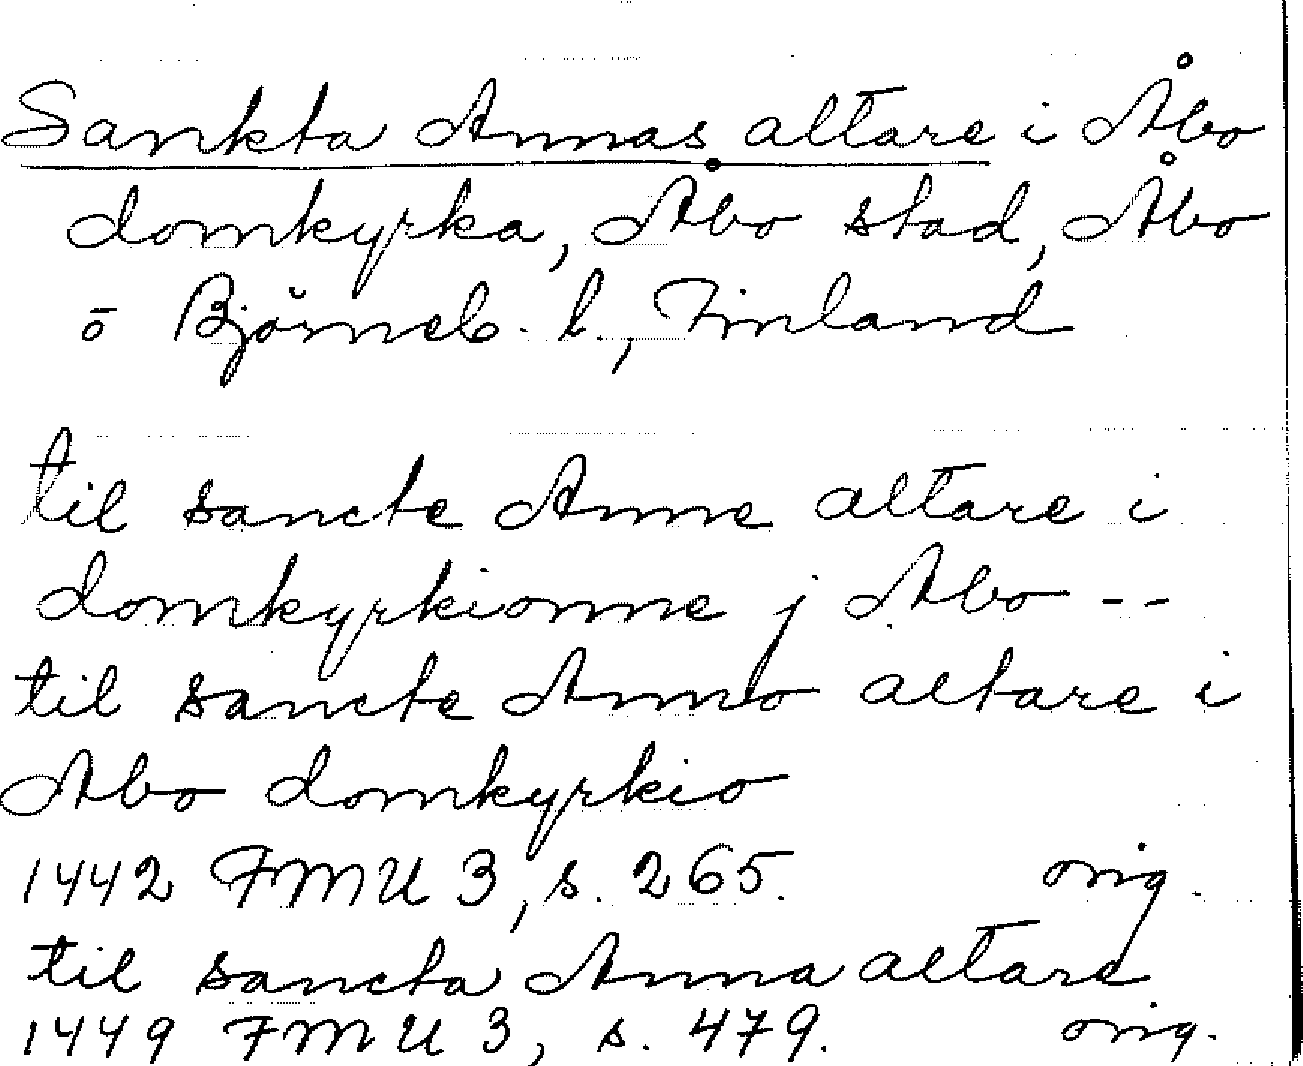 Sankta Annas altare i Åbo
domkyrka, Åbo stad, Åbo
o Björneb. l., Finland
til sancte Anne altare i
domkyrkionne j Abo --
til sancte Anno altare i
Abo domkyrkio
1442 FMU 3, s. 265. orig.
til sancta Anna altare
1449 FMU 3, s. 479. orig.